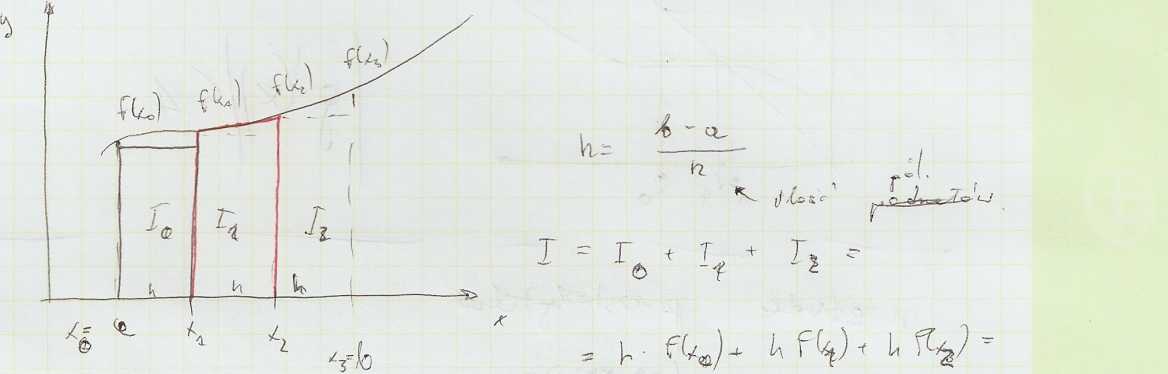 y
f(x₀) f(x₁) f(x₂) f(x₃)
I₀ I₁ I₂
h h h
x₀=a x₁ x₂ x₃=b x
h = (b - a)/n
ilość
I = I₀ + I₁ + I₂ =
= h · f(x₀) + h f(x₁) + h f(x₂) =